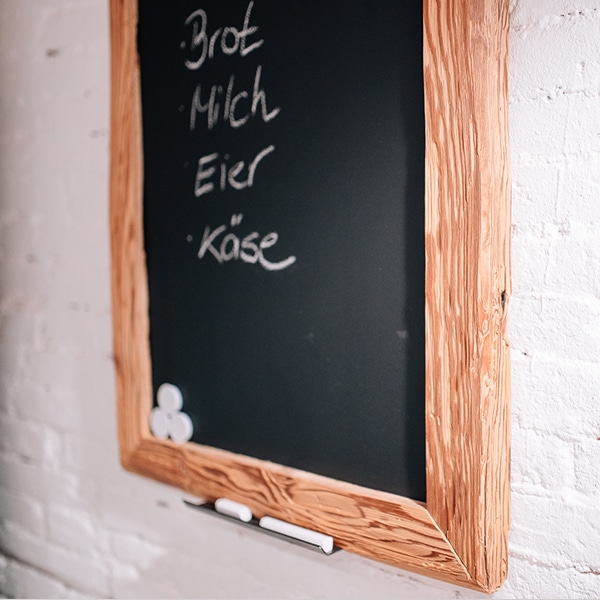 · Brot
· Milch
· Eier
· Käse